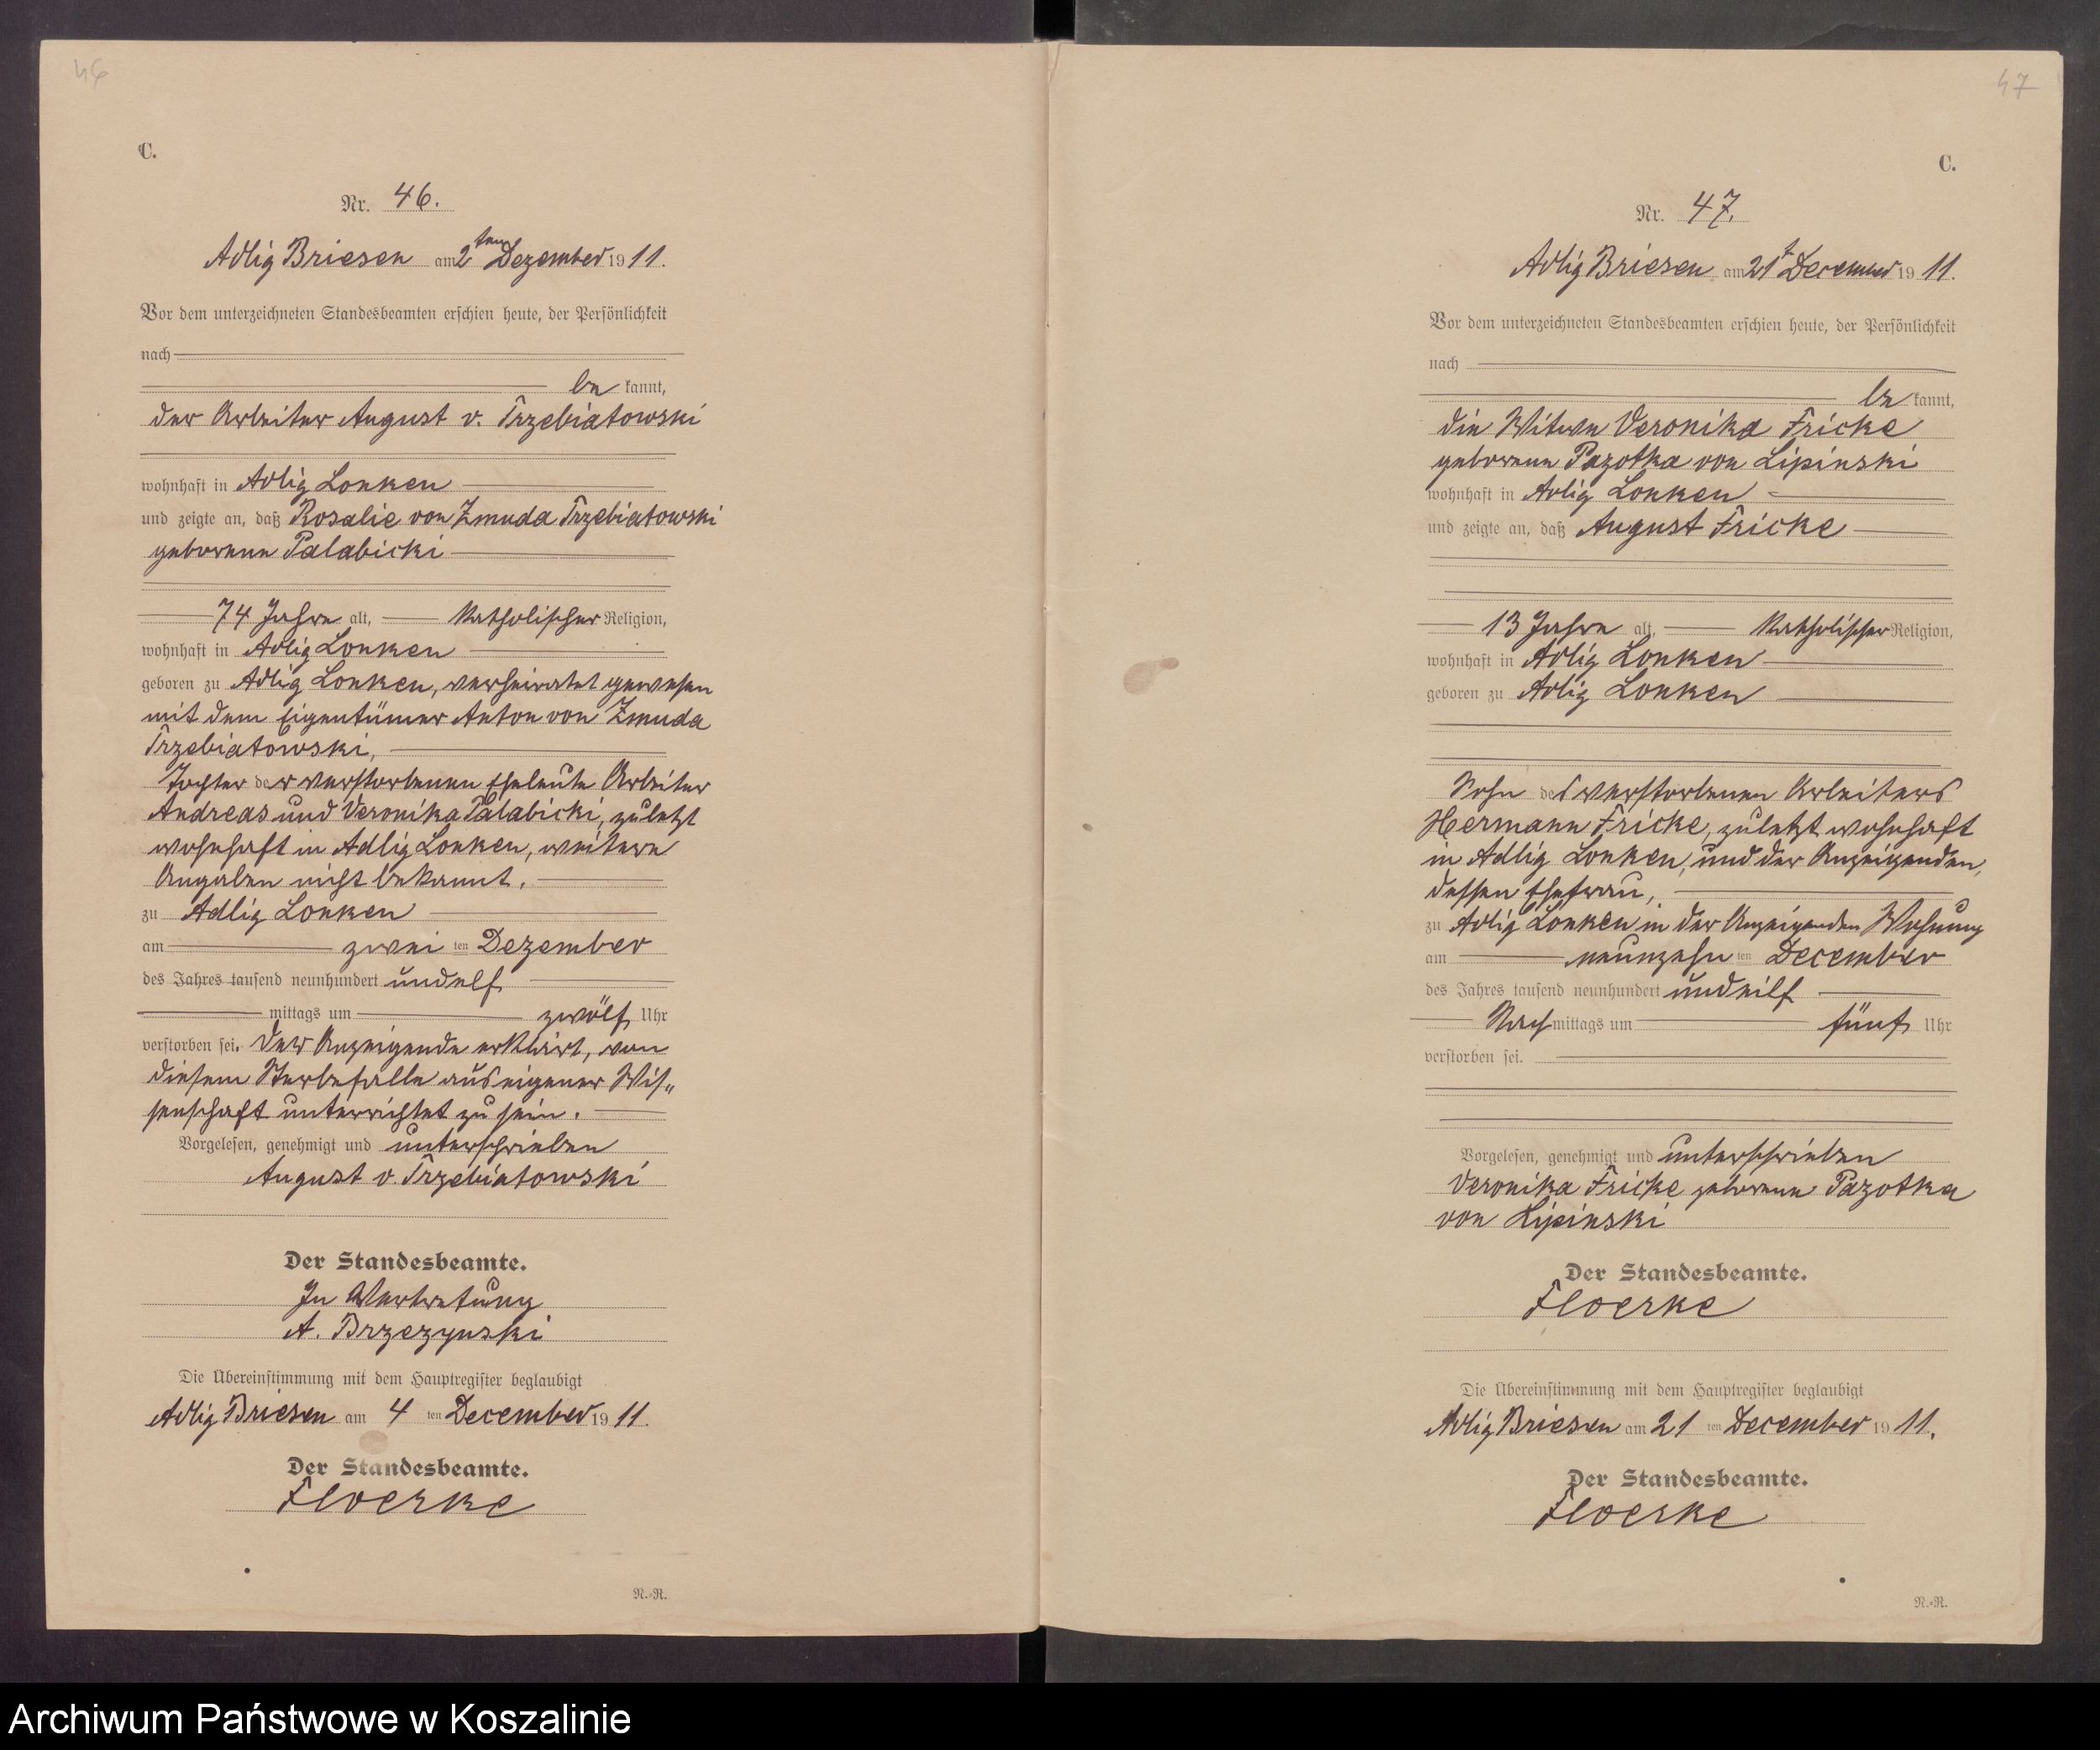 46
C.
Nr. 46.
Adlig Briesen am 2ten Dezember 1911.
Vor dem unterzeichneten Standesbeamten erschien heute, der Persönlichkeit
nach
be kannt,
der Arbeiter August v. Trzebiatowski
wohnhaft in Adlig Lonken
und zeigte an, daß Rosalie von Zmuda Trzebiatowski
geborene Palabicki
74 Jahre alt, katholischer Religion,
wohnhaft in Adlig Lonken
geboren zu Adlig Lonken, verheiratet gewesen
mit dem Eigentümer Anton von Zmuda
Trzebiatowski,
Tochter der verstorbenen Eheleute Arbeiter
Andreas und Veronika Palabicki, zuletzt
wohnhaft in Adlig Lonken, weitere
Angaben nicht bekannt.
zu Adlig Lonken
am zwei ten Dezember
des Jahres tausend neunhundert undelf
mittags um zwölf Uhr
verstorben sei. Der Anzeigende erklärt, von
diesem Sterbefalle aus eigener Wis„
senschaft unterrichtet zu sein.
Vorgelesen, genehmigt und unterschrieben
August v Trzebiatowski
Der Standesbeamte.
In Vertretung
A. Brzezynski
Die Übereinstimmung mit dem Hauptregister beglaubigt
Adlig Briesen am 4 ten December 1911.
Der Standesbeamte.
Floerke
N.-R.
47
C.
Nr. 47.
Adlig Briesen am 21t December 1911.
Vor dem unterzeichneten Standesbeamten erschien heute, der Persönlichkeit
nach
be kannt,
die Witwe Veronika Fricke
geborene Pazotka von Lipinski
wohnhaft in Adlig Lonken
und zeigte an, daß August Fricke
13 Jahre alt, katholischer Religion,
wohnhaft in Adlig Lonken
geboren zu Adlig Lonken
Sohn des verstorbenen Arbeiters
Hermann Fricke, zuletzt wohnhaft
in Adlig Lonken, und der Anzeigenden,
dessen Ehefrau,
zu Adlig Lonken in der Anzeigenden Wohnung
am neunzehn ten December
des Jahres tausend neunhundert undeilf
Nach mittags um fünf Uhr
verstorben sei.
Vorgelesen, genehmigt und unterschrieben
Veronika Fricke geborene Pazotka
von Lipinski
Der Standesbeamte.
Floerke
Die Übereinstimmung mit dem Hauptregister beglaubigt
Adlig Briesen am 21 ten December 1911.
Der Standesbeamte.
Floerke
N.-R.
Archiwum Państwowe w Koszalinie